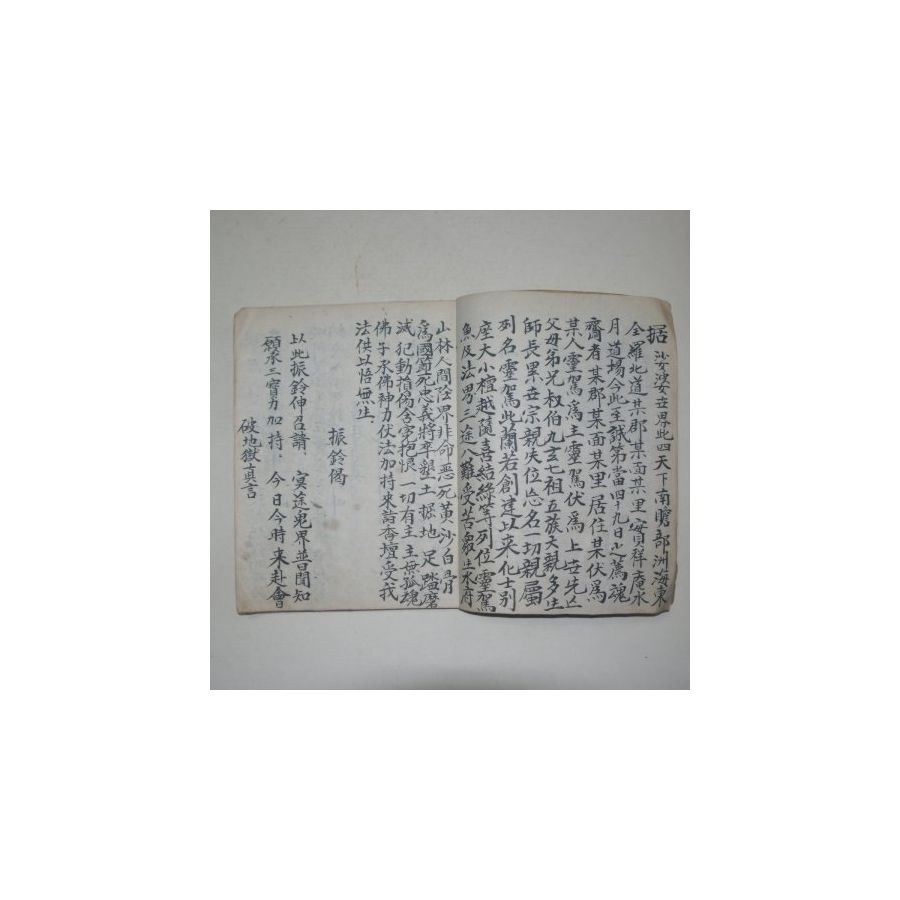 据 沙婆世界此四天下南贍部洲海東
全羅北道某郡某面某里 寶祥庵水
月道場今此至誠第當四十九日之薦魂
齋者某郡某面某里居住某伏爲
某人靈駕爲主靈駕伏爲上世先亡
父母弟兄叔伯九玄七祖五族六親多生
師長累世宗親失位忘名一切親屬
列名靈駕此蘭若創建以來化士別
座大小檀越隨喜結緣等列位靈駕
魚及法男三途八難受苦衆生水府
山林人間陰界非命惡死黃沙白骨
爲國節死忠義將卒墾土掘地足踏磨
滅犯動損傷含寃抱恨一切有主主無孤魂
佛子承佛神力伏法加持來詣香壇受我
法供以悟無生
振鈴偈
以此振鈴伸召請 冥途鬼界普聞知
願承三寶力加持 今日今時來赴會
破地獄眞言